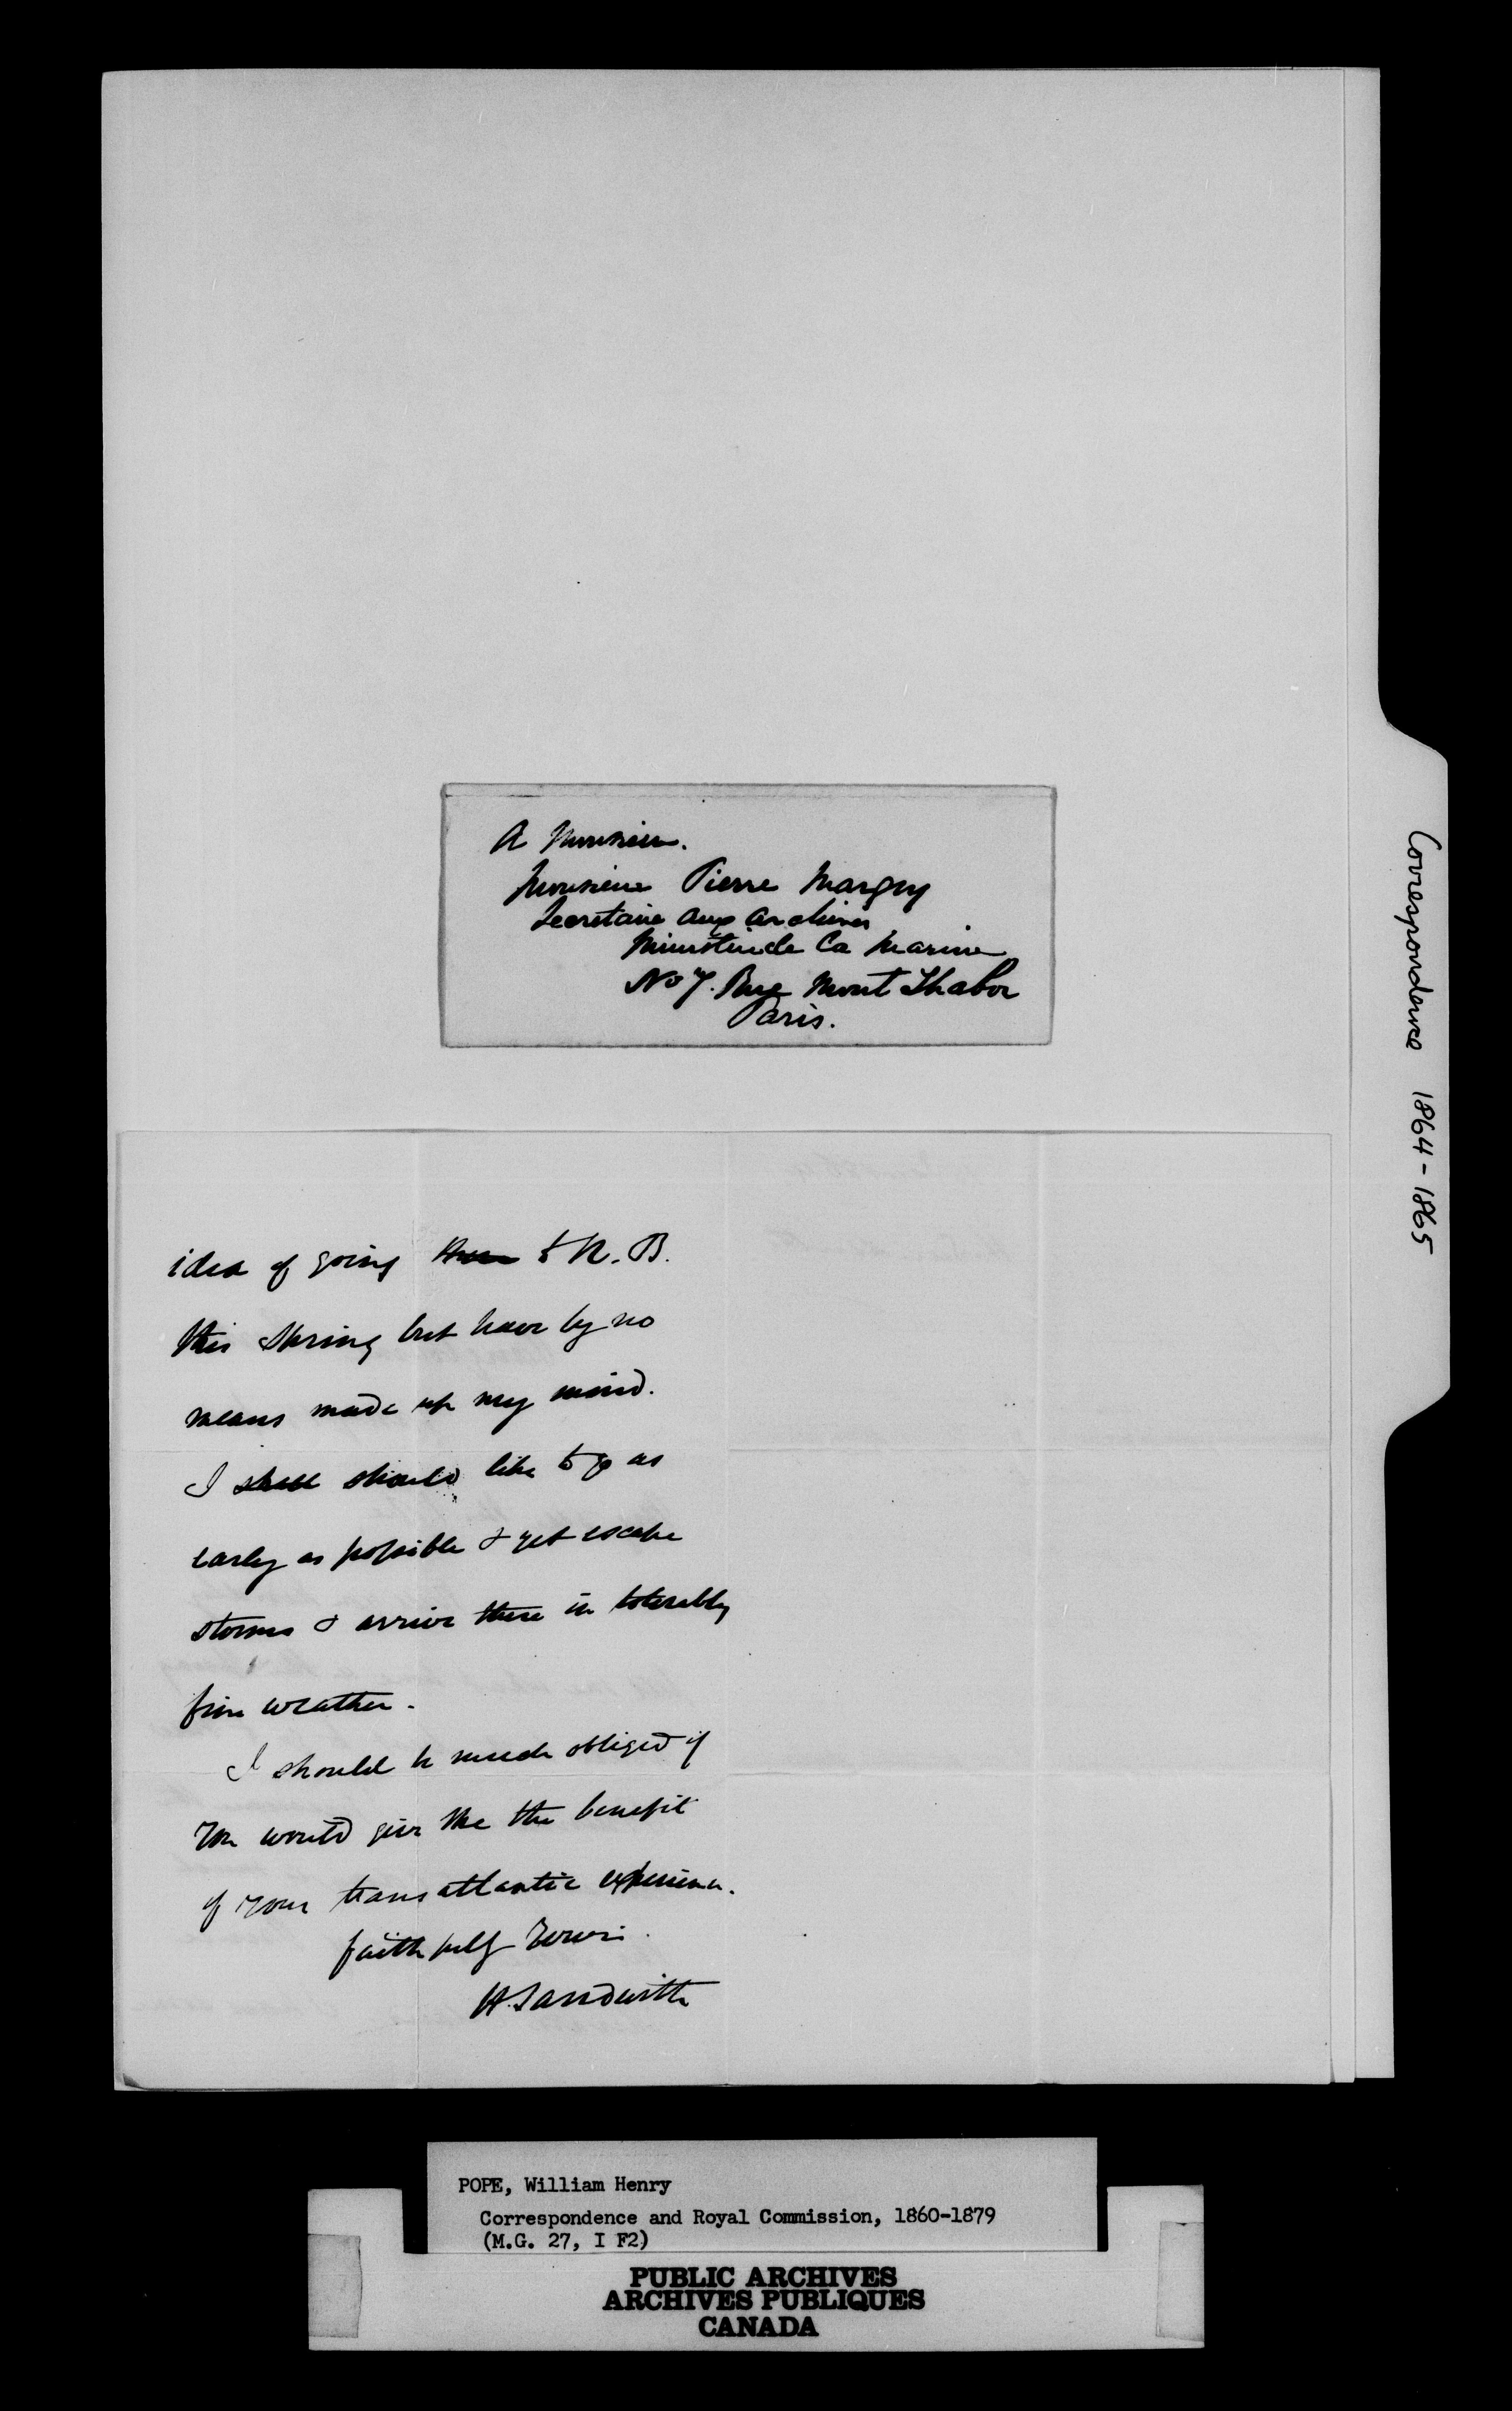 A Monsieur.
Monsieur Pierre Margry
Secretaire aux Archives
Ministère de la Marine
No 7. Rue Mont Thabor
Paris.
Correspondence 1864-1865
idea of going to N. B.
this Spring but have by no
means made up my mind.
I shall should like to go as
early as possible & yet escape
storms & arrive there in tolerably
fine weather.
I should be much obliged if
you would give me the benefit
of your transatlantic experience.
faithfully Yours
H. Sandwith
POPE, William Henry
Correspondence and Royal Commission, 1860-1879
(M.G. 27, I F2)
PUBLIC ARCHIVES
ARCHIVES PUBLIQUES
CANADA